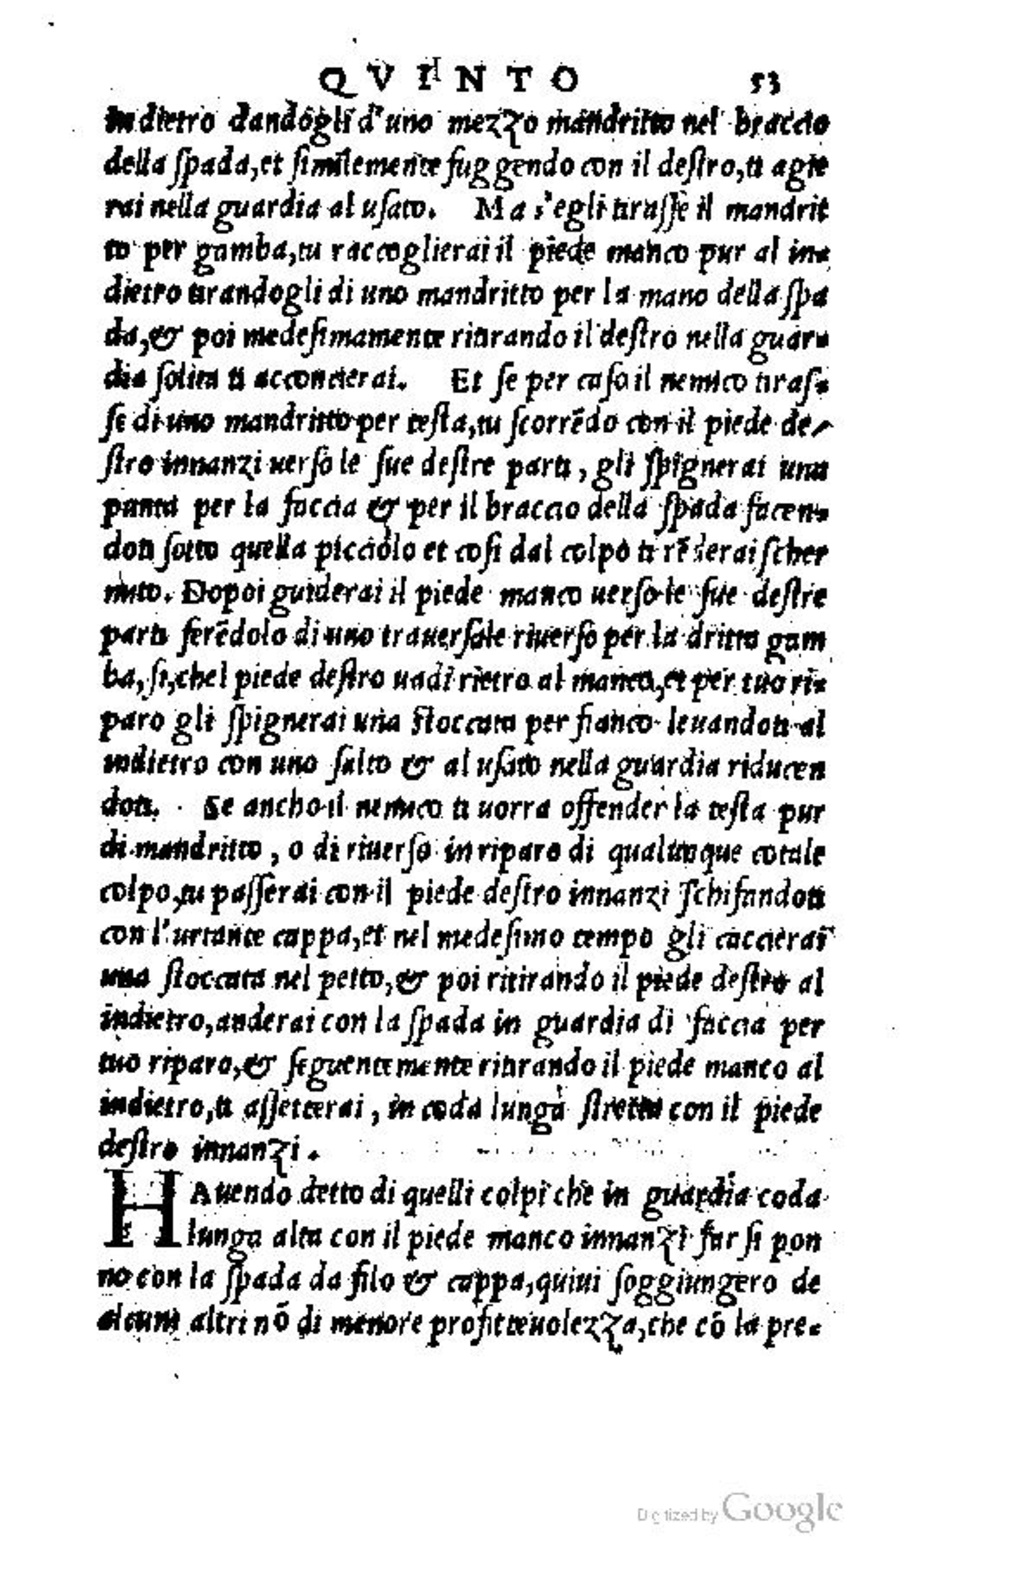 QVINTO 53
indietro dandogli d'uno mezzo mandritto nel braccio
della ſpada, et ſimilemente fuggendo con il deſtro, ti agie
rai nella guardia al uſato. Ma s'egli tiraſſe il mandrit
to per gamba, tu raccoglierai il piede manco pur al in-
dietro tirandogli di uno mandritto per la mano della ſpa
da, & poi medeſimamente ritirando il deſtro nella guar-
dia ſolita ti acconcierai. Et ſe per caſo il nemico tiraſ-
ſe di uno mandritto per teſta, tu ſcorrēdo con il piede de-
ſtro innanzi uerſo le ſue deſtre parti, gli ſpignerai una
punta per la faccia & per il braccio della ſpada facen-
doti ſotto quella picciolo et coſi dal colpo ti rēderai ſcher
mito. Dopoi guiderai il piede manco uerſo le ſue deſtre
parti ferēdolo di uno trauerſale riuerſo per la dritta gam
ba, ſi, chel piede deſtro uadi rietro al manco, et per tuo ri-
paro gli ſpignerai una ſtoccata per fianco leuandoti al
indietro con uno ſalto & al uſato nella guardia riducen
doti. Se ancho il nemico ti uorra offender la teſta pur
di mandritto, o di riuerſo in riparo di qualunque cotale
colpo, tu paſſerai con il piede deſtro innanzi ſchifandoti
con l'urtante cappa, et nel medeſimo tempo gli caccierai
una ſtoccata nel petto, & poi ritirando il piede deſtro al
indietro, anderai con la ſpada in guardia di faccia per
tuo riparo, & ſeguentemente ritirando il piede manco al
indietro, ti aſſetterai, in coda lunga ſtretta con il piede
deſtro innanzi.
HAuendo detto di quelli colpi chè in guardia coda
lunga alta con il piede manco innanzi far ſi pon
no con la ſpada da filo & cappa, quiui ſoggiungero de
alcuni altri nō di menore profitteuolezza, che cō la pre-
Digitized by Google